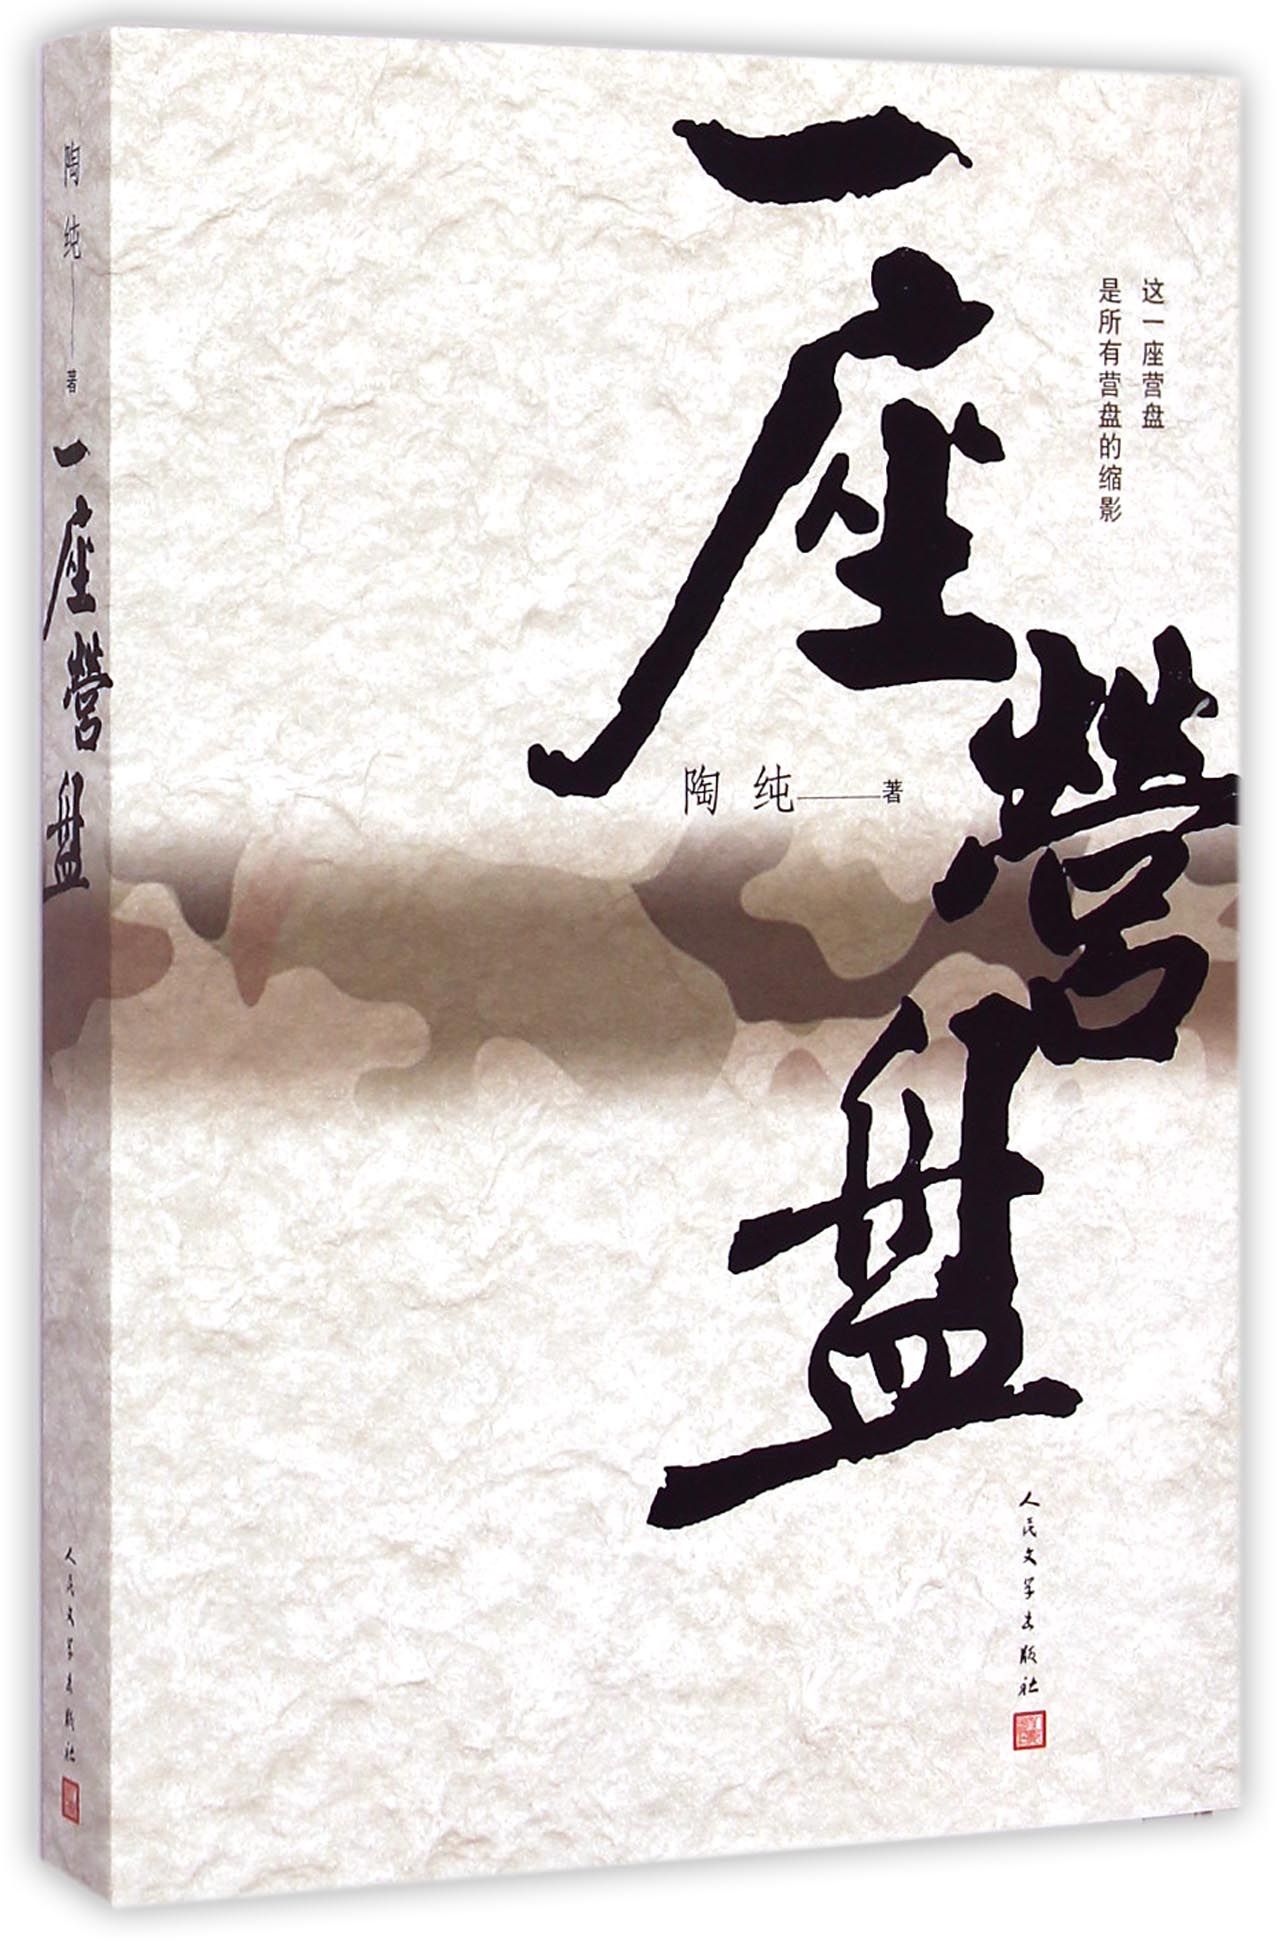 一座營盘
这一座营盘
是所有营盘的缩影
陶纯——著
人民文学出版社
陶纯——著
一座營盘
人民文学出版社